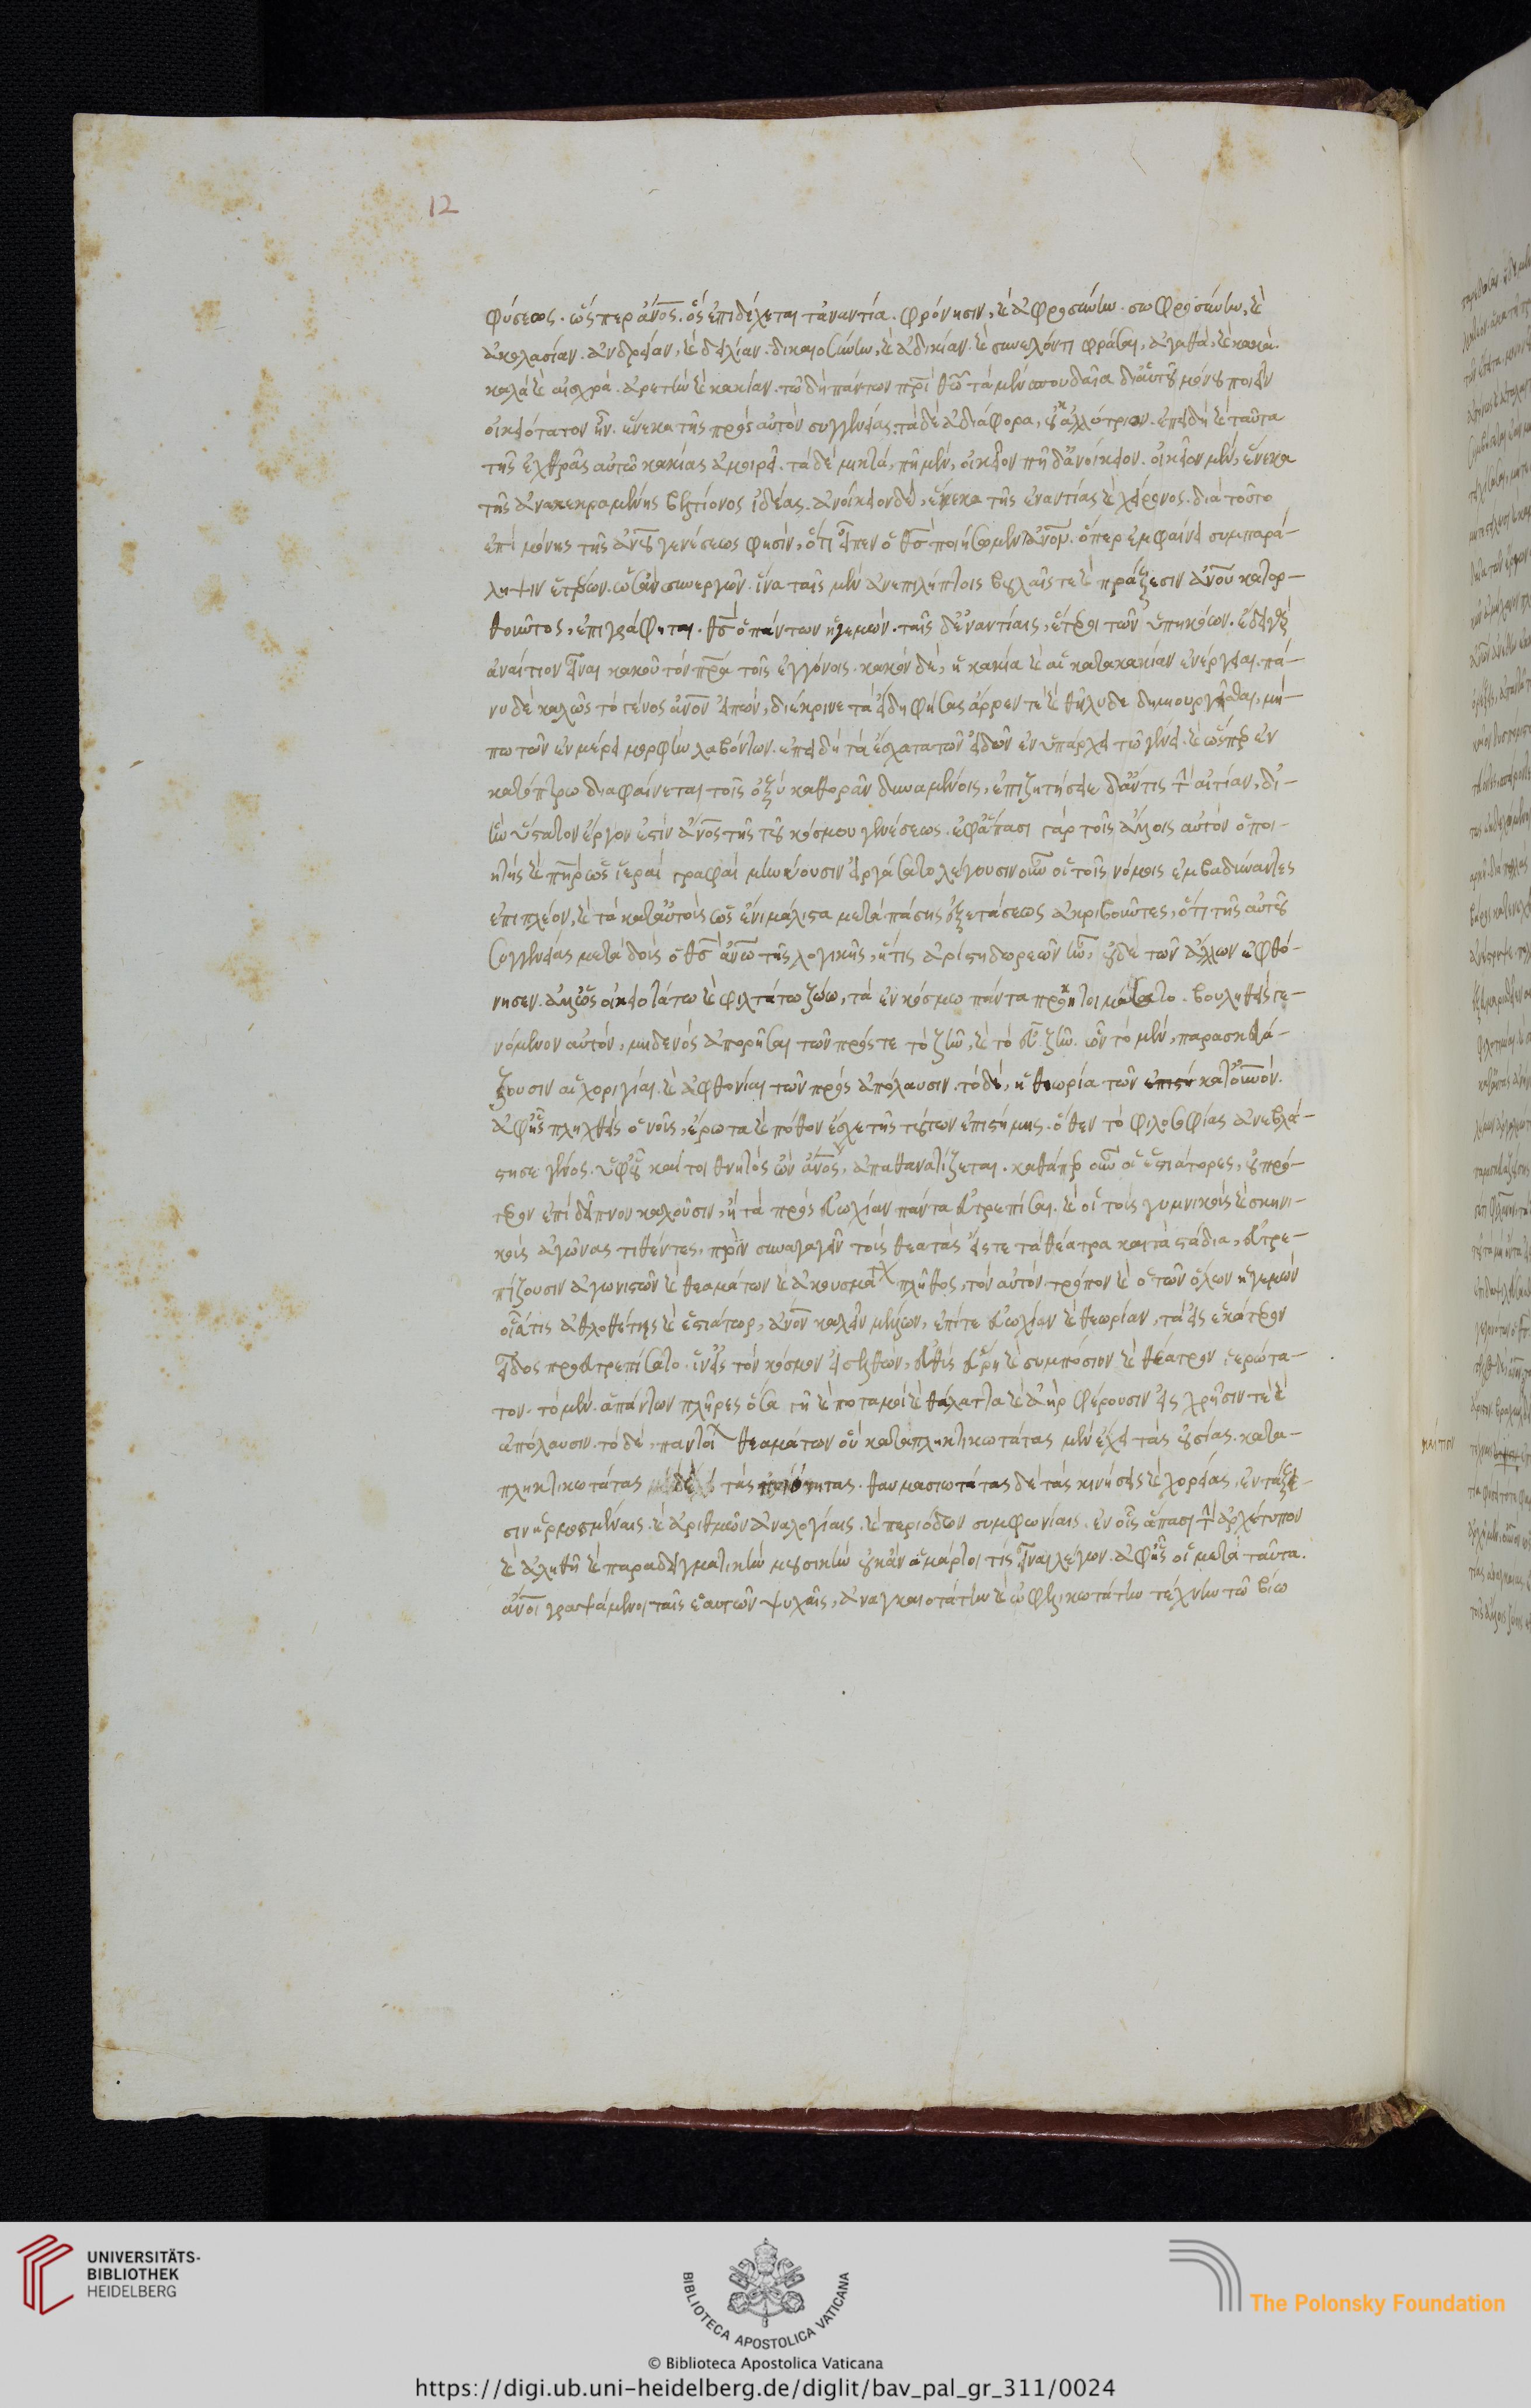 12
φύσεως. ὥσπερ ἄνος. ὃς ἐπιδέχεται τἀναντία. φρόνησιν, καὶ ἀφροσύνην. σωφροσύνην, καὶ
ἀκολασίαν. ἀνδρείαν, καὶ δειλίαν. δικαιοσύνην, καὶ ἀδικίαν. καὶ συνελόντι φράσαι, ἀγαθὰ, καὶ κακά.
καλὰ καὶ αἰσχρά. ἀρετὴν καὶ κακίαν. τῷ δὴ πάντων πρὶ θῶ τὰ μὲν σπουδαῖα δι' αὐτοῦ μόνου ποιεῖν
οἰκειότατον ἦν. ἕνεκα τῆς πρὸς αὐτὸν συγγενείας. τὰ δὲ ἀδιάφορα, οὐκ ἀλλότριον. ἐπειδὴ καὶ ταῦτα
τῆς ἐχθρᾶς αὐτῶ κακίας ἀμοιρεῖ. τὰ δὲ μικτά, πῆ μὲν, οἰκεῖον πῆ δ' ἀνοίκειον. οἰκεῖον μὲν, ἕνεκα
τῆς ἀνακεκραμένης βελτίονος ἰδέας. ἀνοίκειον δὲ, ἕνεκα τῆς ἐναντίας καὶ χείρονος. διὰ τοῦτο
ἐπὶ μόνης τῆς ἀνου γενέσεως φησὶν, ὅτι εἶπεν ὁ θς ποιήσωμεν ἄνον. ὅπερ ἐμφαίνει συμπαρά-
ληψιν ἑτέρων. ὡσὰν συνεργῶν. ἵνα ταῖς μὲν ἀνεπιλήπτοις βουλαῖς τε καὶ πράξεσιν ἀνου κατορ-
θοῦντος, ἐπιγράφηται. θς ὁ πάντων ἡγεμών. ταῖς δ' ἐναντίαις, ἕτεροι τῶν ὑπηκόων. ἔδει γὰρ
ἀναίτιον εἶναι κακοῦ τὸν πρα τοῖς ἐγγόνοις. κακὸν δὲ, ἡ κακία καὶ αἱ κατὰ κακίαν ἐνέργειαι. πά-
νυ δὲ καλῶς τὸ γένος ἄνον εἰπὼν, διέκρινε τὰ εἴδη φήσας ἄρρεν τὲ καὶ θῆλυ δεδημιουργῆσθαι, μή-
πω τῶν ἐν μέρει μορφὴν λαβόντων. ἐπειδὴ τὰ ἔσχατα τῶν εἰδῶν ἐνυπάρχει τῷ γένει. καὶ ὥσπερ ἐν
κατόπτρω διαφαίνεται τοῖς ὀξὺ καθορᾶν δυναμένοις, ἐπιζητήσειε δ' ἄν τις τὴν αἰτίαν, δι'
ἣν ὕστατον ἔργον ἐστὶν ἄνος τῆς τοῦ κόσμου γενέσεως. ἐφ' ἅπασι γὰρ τοῖς ἄλλοις αὐτὸν ὁ ποι-
ητὴς καὶ πηρ ὡς ἱεραὶ γραφαὶ μηνύουσιν εἰργάσατο λέγουσιν οὖν οἱ τοῖς νόμοις ἐμβαθύναντες
ἐπιπλέον, καὶ τὰ κατ' αὐτοὺς ὡς ἔνι μάλιστα μετὰ πάσης ἐξετάσεως ἀκριβοῦντες, ὅτι τῆς αὐτοῦ
συγγενείας μεταδοὺς ὁ θς ἄνω τῆς λογικῆς, ἥτις ἀρίστη δωρεῶν ἦν, οὐδὲ τῶν ἄλλων ἐφθό-
νησεν. ἀλλ' ὡς οἰκειοτάτω καὶ φιλτάτω ζώω, τὰ ἐν κόσμω πάντα προητοιμάσατο. βουληθεὶς γε-
νόμενον αὐτὸν, μηδενὸς ἀπορῆσαι τῶν πρός τε τὸ ζῆν, καὶ τὸ εὖ ζῆν. ὧν τὸ μὲν, παρασκευά-
ζουσιν αἱ χορηγίαι. καὶ ἀφθονίαι τῶν πρὸς ἀπόλαυσιν. τὸ δὲ, ἡ θεωρία τῶν κατ' οὐνόν.
ἀφ' ἧς πληχθεὶς ὁ νοῦς, ἔρωτα καὶ πόθον ἔσχε τῆς τούτων ἐπιστήμης. ὅθεν τὸ φιλοσοφίας ἀνεβλά-
στησε γένος. ὑφ' οὗ καίτοι θνητὸς ὢν ἄνος, ἀπαθανατίζεται. καθάπερ οὖν οἱ ἑστιάτορες, οὐ πρό-
τερον ἐπὶ δεῖπνον καλοῦσιν, ἢ τὰ πρὸς εὐωχίαν πάντα εὐτρεπίσαι. καὶ οἱ τοὺς γυμνικοὺς καὶ σκηνι-
κοὺς ἀγῶνας τιθέντες, πρὶν συναγαγεῖν τοὺς θεατὰς εἴς τε τὰ θέατρα καὶ τὰ στάδια, εὐτρε-
πίζουσιν ἀγωνιστῶν καὶ θεαμάτων καὶ ἀκουσμάτων πλῆθος, τὸν αὐτὸν τρόπον καὶ ὁ τῶν ὅλων ἡγεμὼν
οἷά τις ἀθλοθέτης καὶ ἑστιάτωρ, ἄνον καλεῖν μέλλων, ἐπί τε εὐωχίαν καὶ θεωρίαν, τὰ εἰς ἑκάτερον
εἶδος προευτρεπίσατο. ἵν' εἰς τὸν κόσμον εἰσελθὼν, εὐθὺς εὕρη καὶ συμπόσιον καὶ θέατρον ἱερώτα-
τον. τὸ μὲν. ἁπάντων πλῆρες ὅσα γῆ καὶ ποταμοὶ καὶ θάλαττα καὶ ἀὴρ φέρουσιν εἰς χρῆσιν τὲ καὶ
ἀπόλαυσιν. τὸ δὲ, παντοίων θεαμάτων οὗ καταπληκτικωτάτας μὲν ἔχει τὰς οὐσίας. κατα-
πληκτικωτάτας δὲ τὰς ποιότητας. θαυμασιωτάτας δὲ τὰς κινήσεις καὶ χορείας, ἐν τάξε-
σιν ἡρμοσμέναις. καὶ ἀριθμῶν ἀναλογίαις. καὶ περιόδων συμφωνίαις. ἐν οἷς ἅπασι τὴν ἀρχέτυπον
καὶ ἀληθῆ καὶ παραδειγματικὴν μουσικὴν οὐκ ἂν ἁμάρτοι τὶς εἶναι λέγων. ἀφ' ἧς οἱ μετὰ ταῦτα.
ἄνοι γραψάμενοι ταῖς ἑαυτῶν ψυχαῖς, ἀναγκαιοτάτην καὶ ὠφελιμωτάτην τέχνην τῶ βίω
UNIVERSITÄTS-
BIBLIOTHEK
HEIDELBERG
BIBLIOTECA APOSTOLICA VATICANA
The Polonsky Foundation
© Biblioteca Apostolica Vaticana
https://digi.ub.uni-heidelberg.de/diglit/bav_pal_gr_311/0024